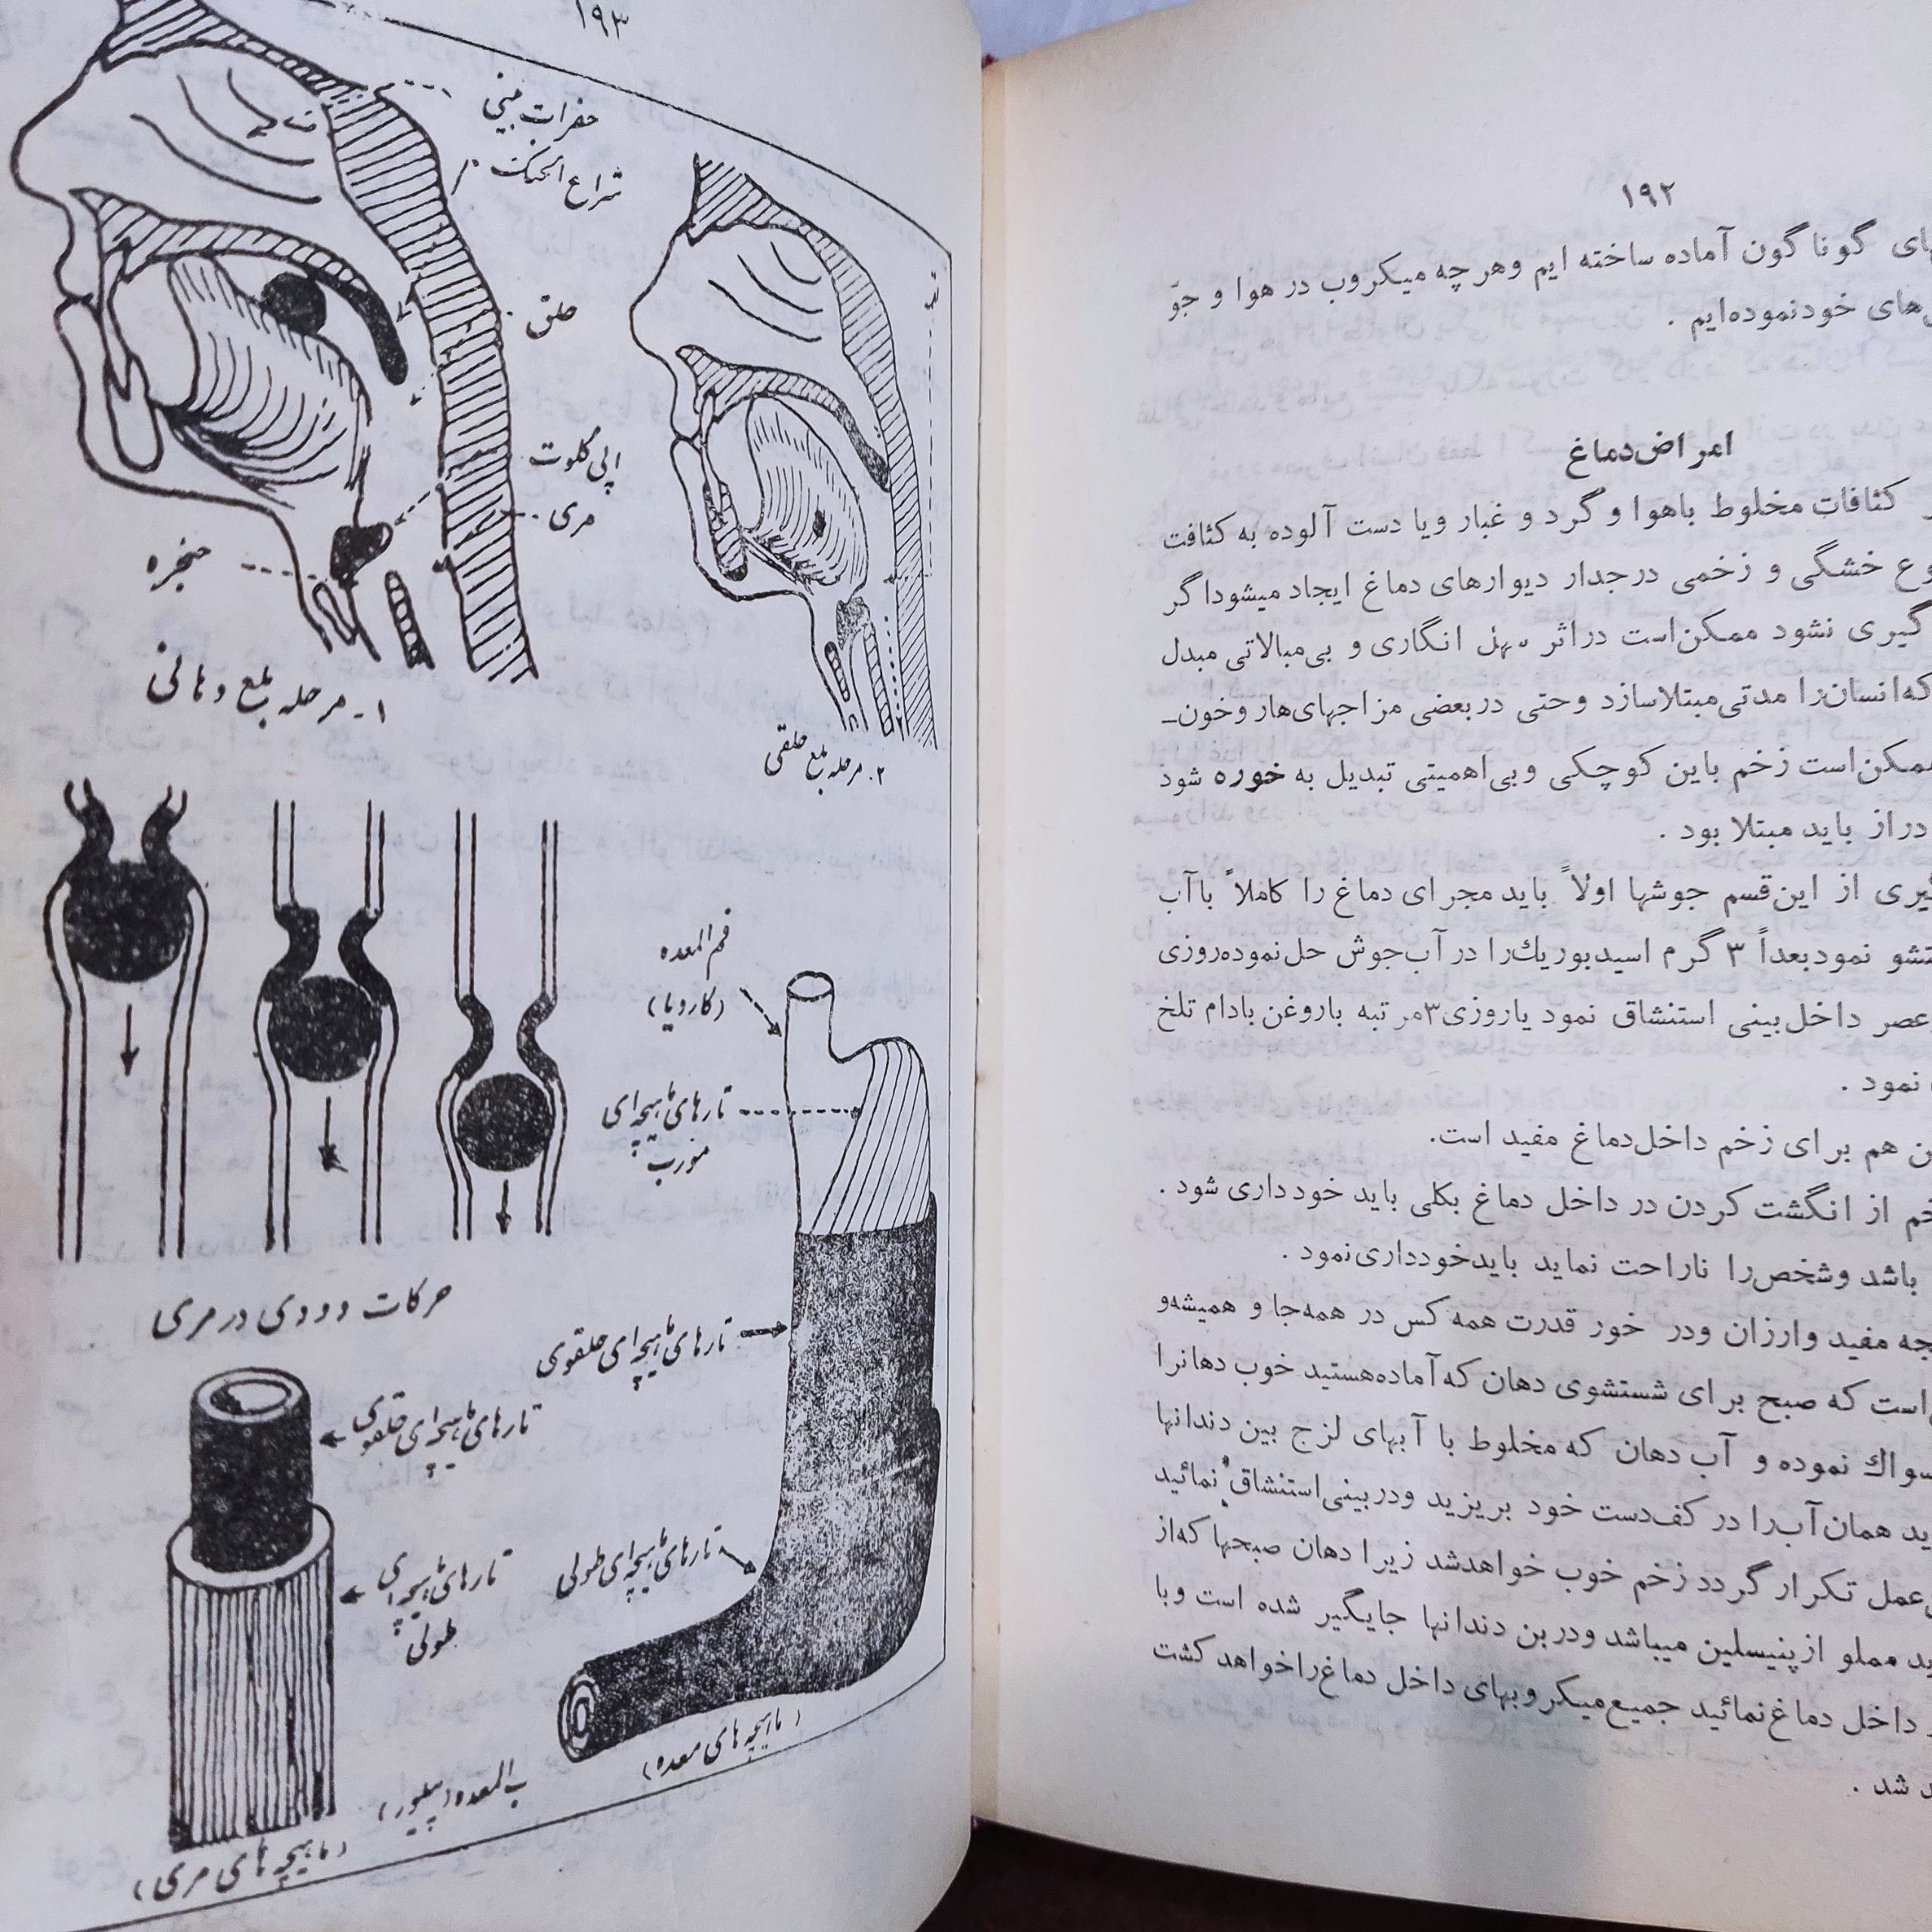 ۱۹۲
گوناگون آماده ساخته ایم وهر چه میکروب در هوا و جوّ
خودنموده‌ایم .
امراض‌دماغ
کثافات مخلوط باهوا و گرد و غبار ویا دست آلوده به کثافت
خشگی و زخمی درجدار دیوارهای دماغ ایجاد میشوداگر
گیری نشود ممکن‌است دراثر سهل انگاری و بی‌مبالاتی مبدل
که‌انسان‌را مدتی‌مبتلاسازد وحتی دربعضی مزاجهای‌هار وخون‌ـ
ممکن‌است زخم باین کوچکی وبی‌اهمیتی تبدیل به خوره شود
دراز باید مبتلا بود .
گیری از این‌قسم جوشها اولاً باید مجرای دماغ را کاملاً باآب
نمودبعداً ۳ گرم اسیدبوریك‌را درآب‌جوش حل‌نموده‌روزی
عصر داخل‌بینی استنشاق نمود یاروزی۳مرتبه باروغن‌بادام تلخ
نمود .
هم برای زخم داخل‌دماغ مفید است.
از انگشت کردن در داخل دماغ بکلی باید خودداری شود .
باشد وشخص‌را ناراحت نماید بایدخودداری‌نمود .
مفید وارزان ودر خور قدرت همه کس در همه‌جا و همیشه‌و
است که صبح برای شستشوی دهان که‌آماده‌هستید خوب دهانرا
نموده و آب دهان که مخلوط با آبهای لزج بین دندانها
همان‌آب‌را در کف‌دست خود بریزید ودربینی‌استنشاق نمائید
عمل تکرار گردد زخم خوب خواهدشد زیرا دهان صبحها که‌از
مملو ازپنیسلین میباشد ودربن دندانها جایگیر شده است وبا
داخل دماغ‌نمائید جمیع‌میکروبهای داخل دماغ‌راخواهد کشت
شد .
۱۹۳
حفرات بینی
شراع الحنک
حلق
اپی گلوت
مری
حنجره
۱ـ مرحله بلع دهانی
۲. مرحله بلع حلقی
فم المعده
تارهای ماهیچه‌ای
مورب
حرکات دودی در مری
تارهای ماهیچه‌ای حلقوی
تارهای ماهیچه‌ای حلقوی
تارهای ماهیچه‌ای طولی
تارهای ماهیچه‌ای
طولی
(ماهیچه های معده)
(ماهیچه های مری)